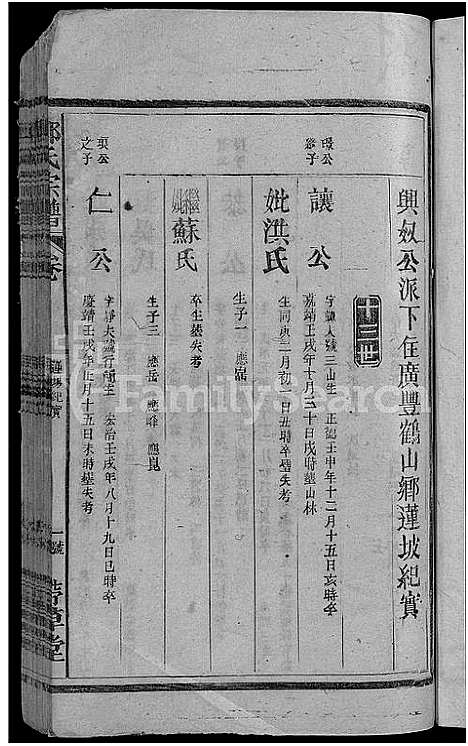 興奴公派下住廣豐鶴山鄉蓮坡紀實
十三世
璟公
讓公
字 大號三山生 正德壬申年十二月十五日亥時卒
嘉靖壬戌年十月三十日戌時 山林
妣洪氏
生同庚三月初二日丑時卒 失考
生子一 應嵩
繼妣蘇氏
卒生 失考
生子三 應岳 應峰 應崑
之子
仁公
弘治壬戌年八月十九日巳時卒
嘉靖壬戌年正月十五日未時 失考
氏宗譜
卷
蓮坡紀實
一號
堂
FamilySearch